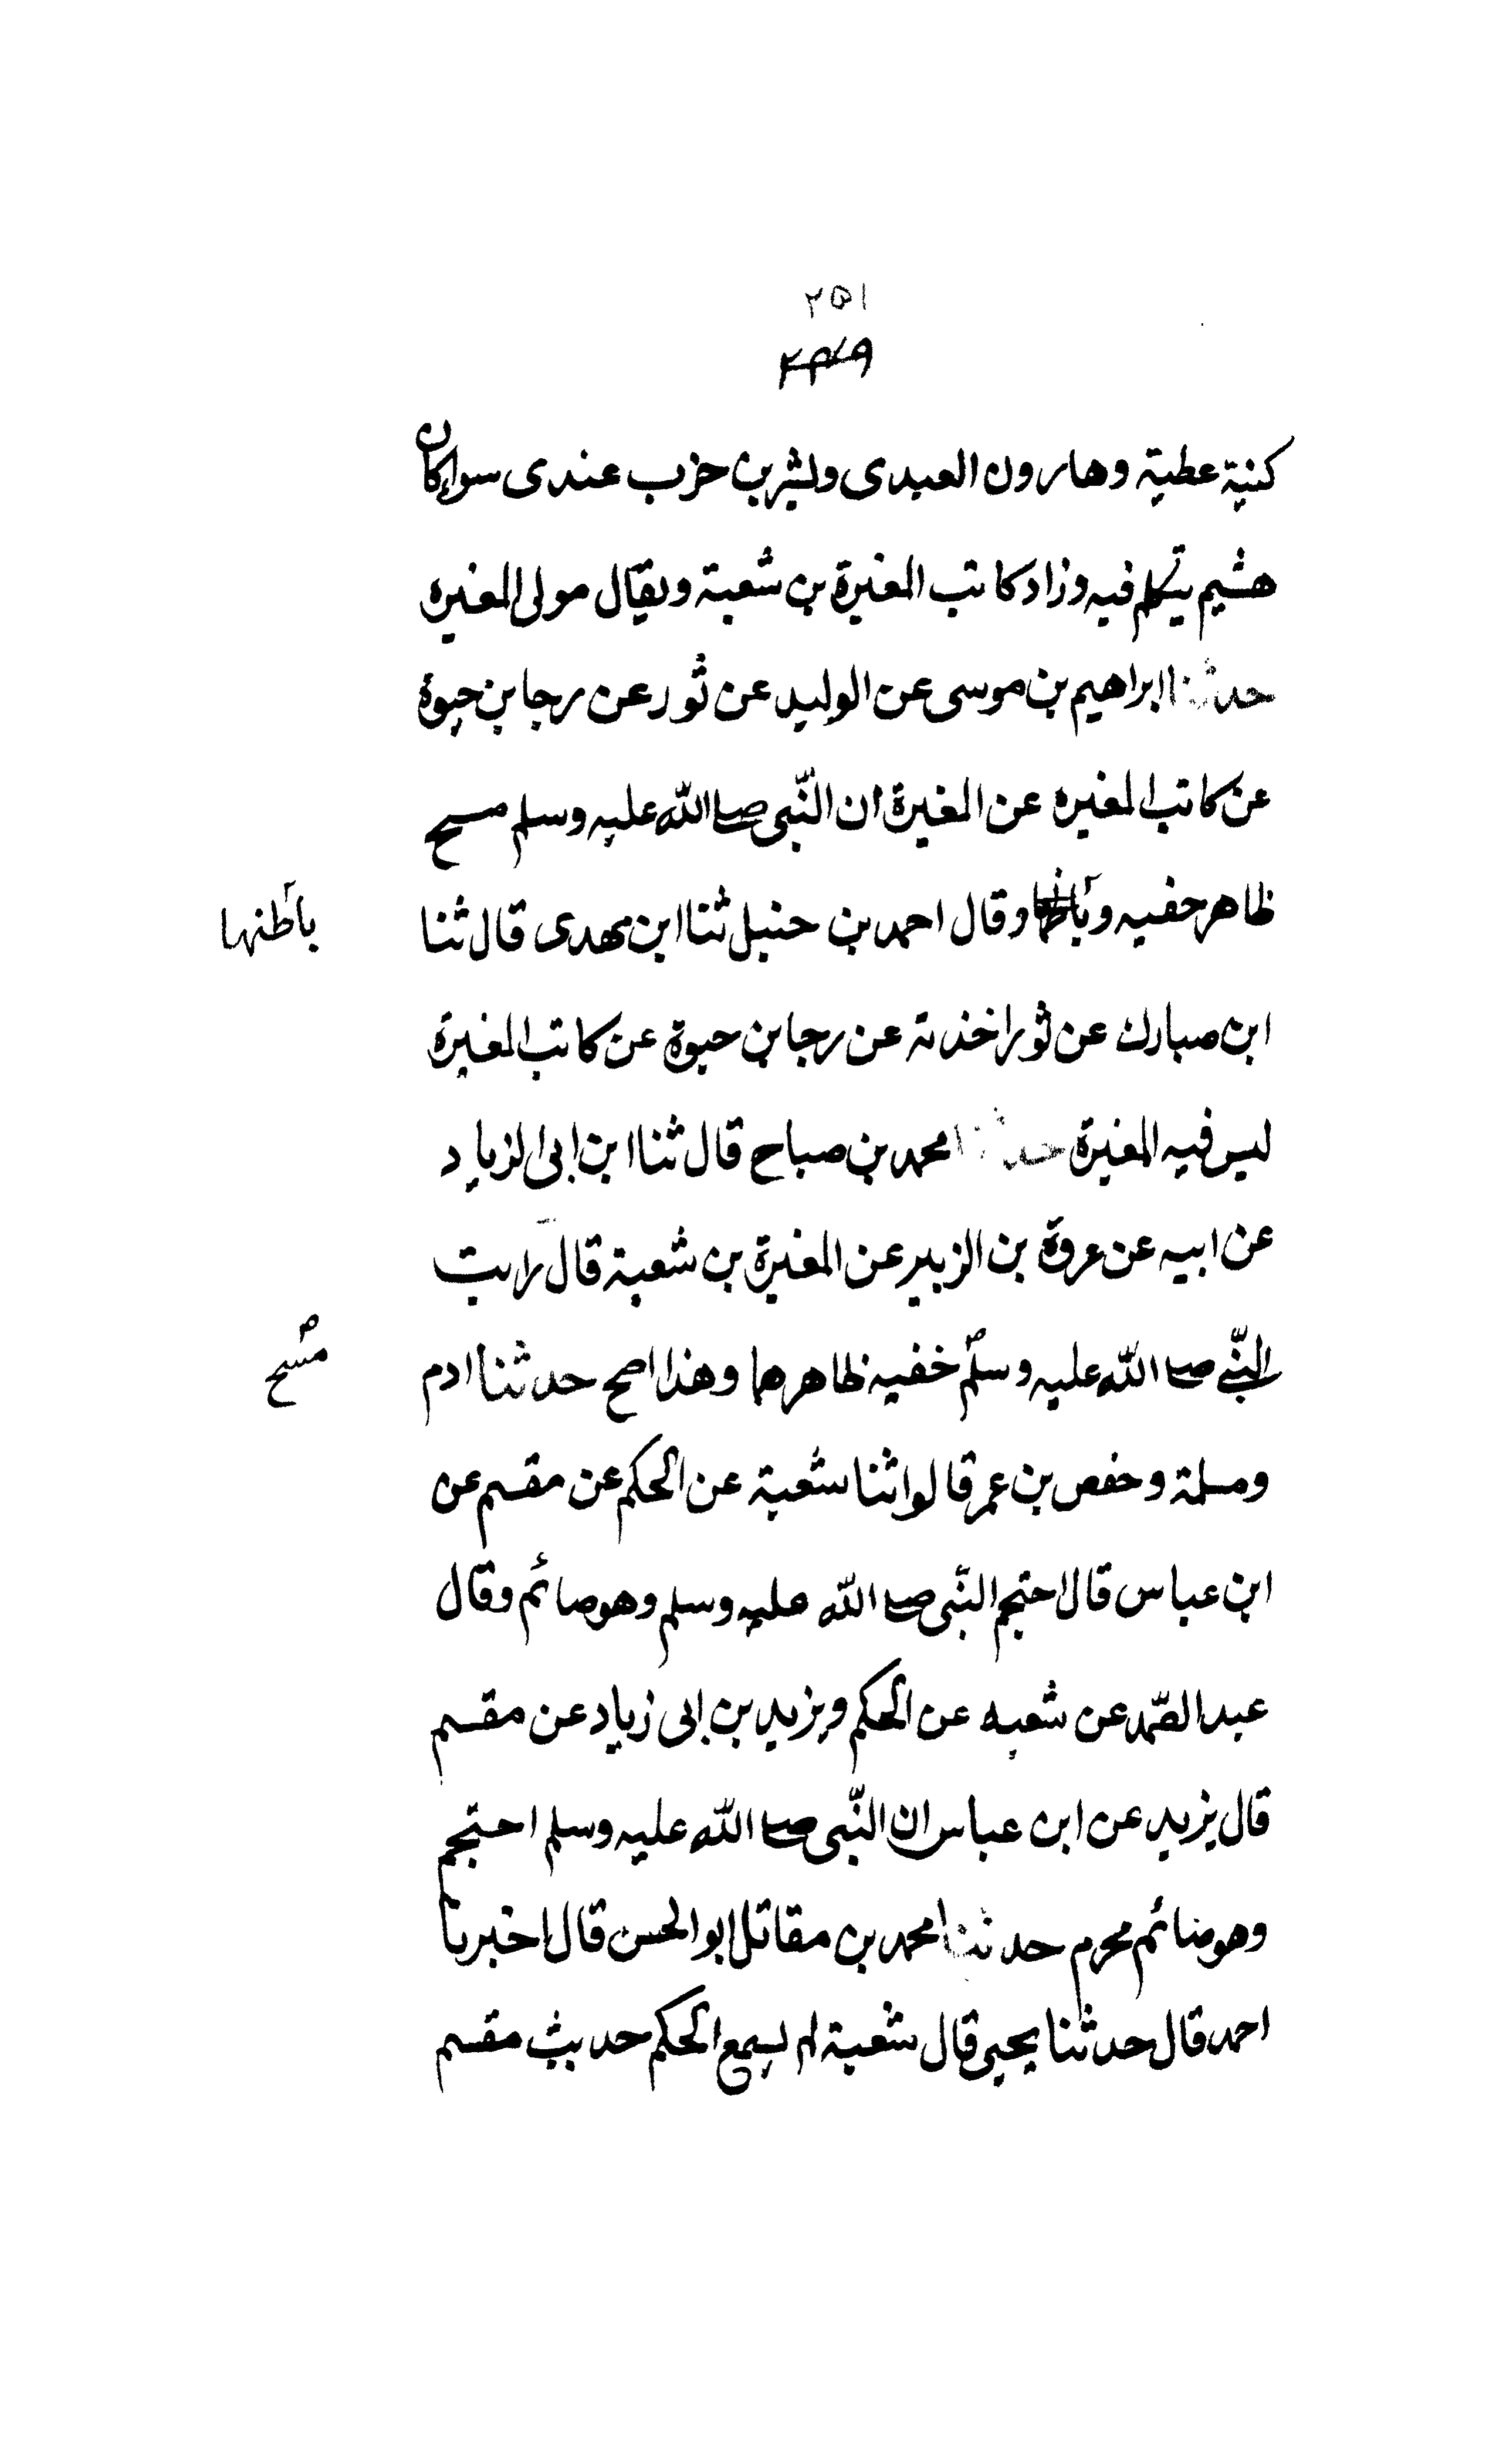 ٢٥١
كنية عطية وهارون العبدى وبشير بن حزب عندى سواء كان
هشيم يتكلم فيه وزاد كاتب المغيرة بن شعبة ويقال مولى المغيره
حدثنا ابراهيم بن موسى عن الوليد عن ثور عن رجا بن حيوة
عن كاتب المغيره عن المغيرة ان النّبى صلى الله عليه وسلم مسح
ظاهر خفيه و وقال احمد بن حنبل ثنا ابن مهدى قال ثنا
باطنها
ابن مبارك عن ثور اخذته عن رجا بن حيوة عن كاتب المغيرة
ليس فيه المغيرة حدثنا محمد بن صباح قال ثنا ابن ابى الزياد
عن ابيه عن عروة بن الزبير عن المغيرة بن شعبة قال رايت
النّبى صلى الله عليه وسلم خفيه ظاهرهما وهذا اصح حدثنا ادم
مسح
ومسلمة وحفص بن عمر قالوا ثنا شعبة عن الحكم عن مقسم عن
ابن عباس قال احتجم النّبى صلى الله عليه وسلم وهو صائم وقال
عبد الصّمد عن شعبه عن الحكم ويزيد بن ابى زياد عن مقسم
قال يزيد عن ابن عباس ان النّبى صلى الله عليه وسلم احتجم
وهو صائم محرم حدثنا محمد بن مقاتل ابو الحسن قال اخبرنا
احمد قال حدثنا يحيى قال شعبة لم يسمع الحكم حديث مقسم